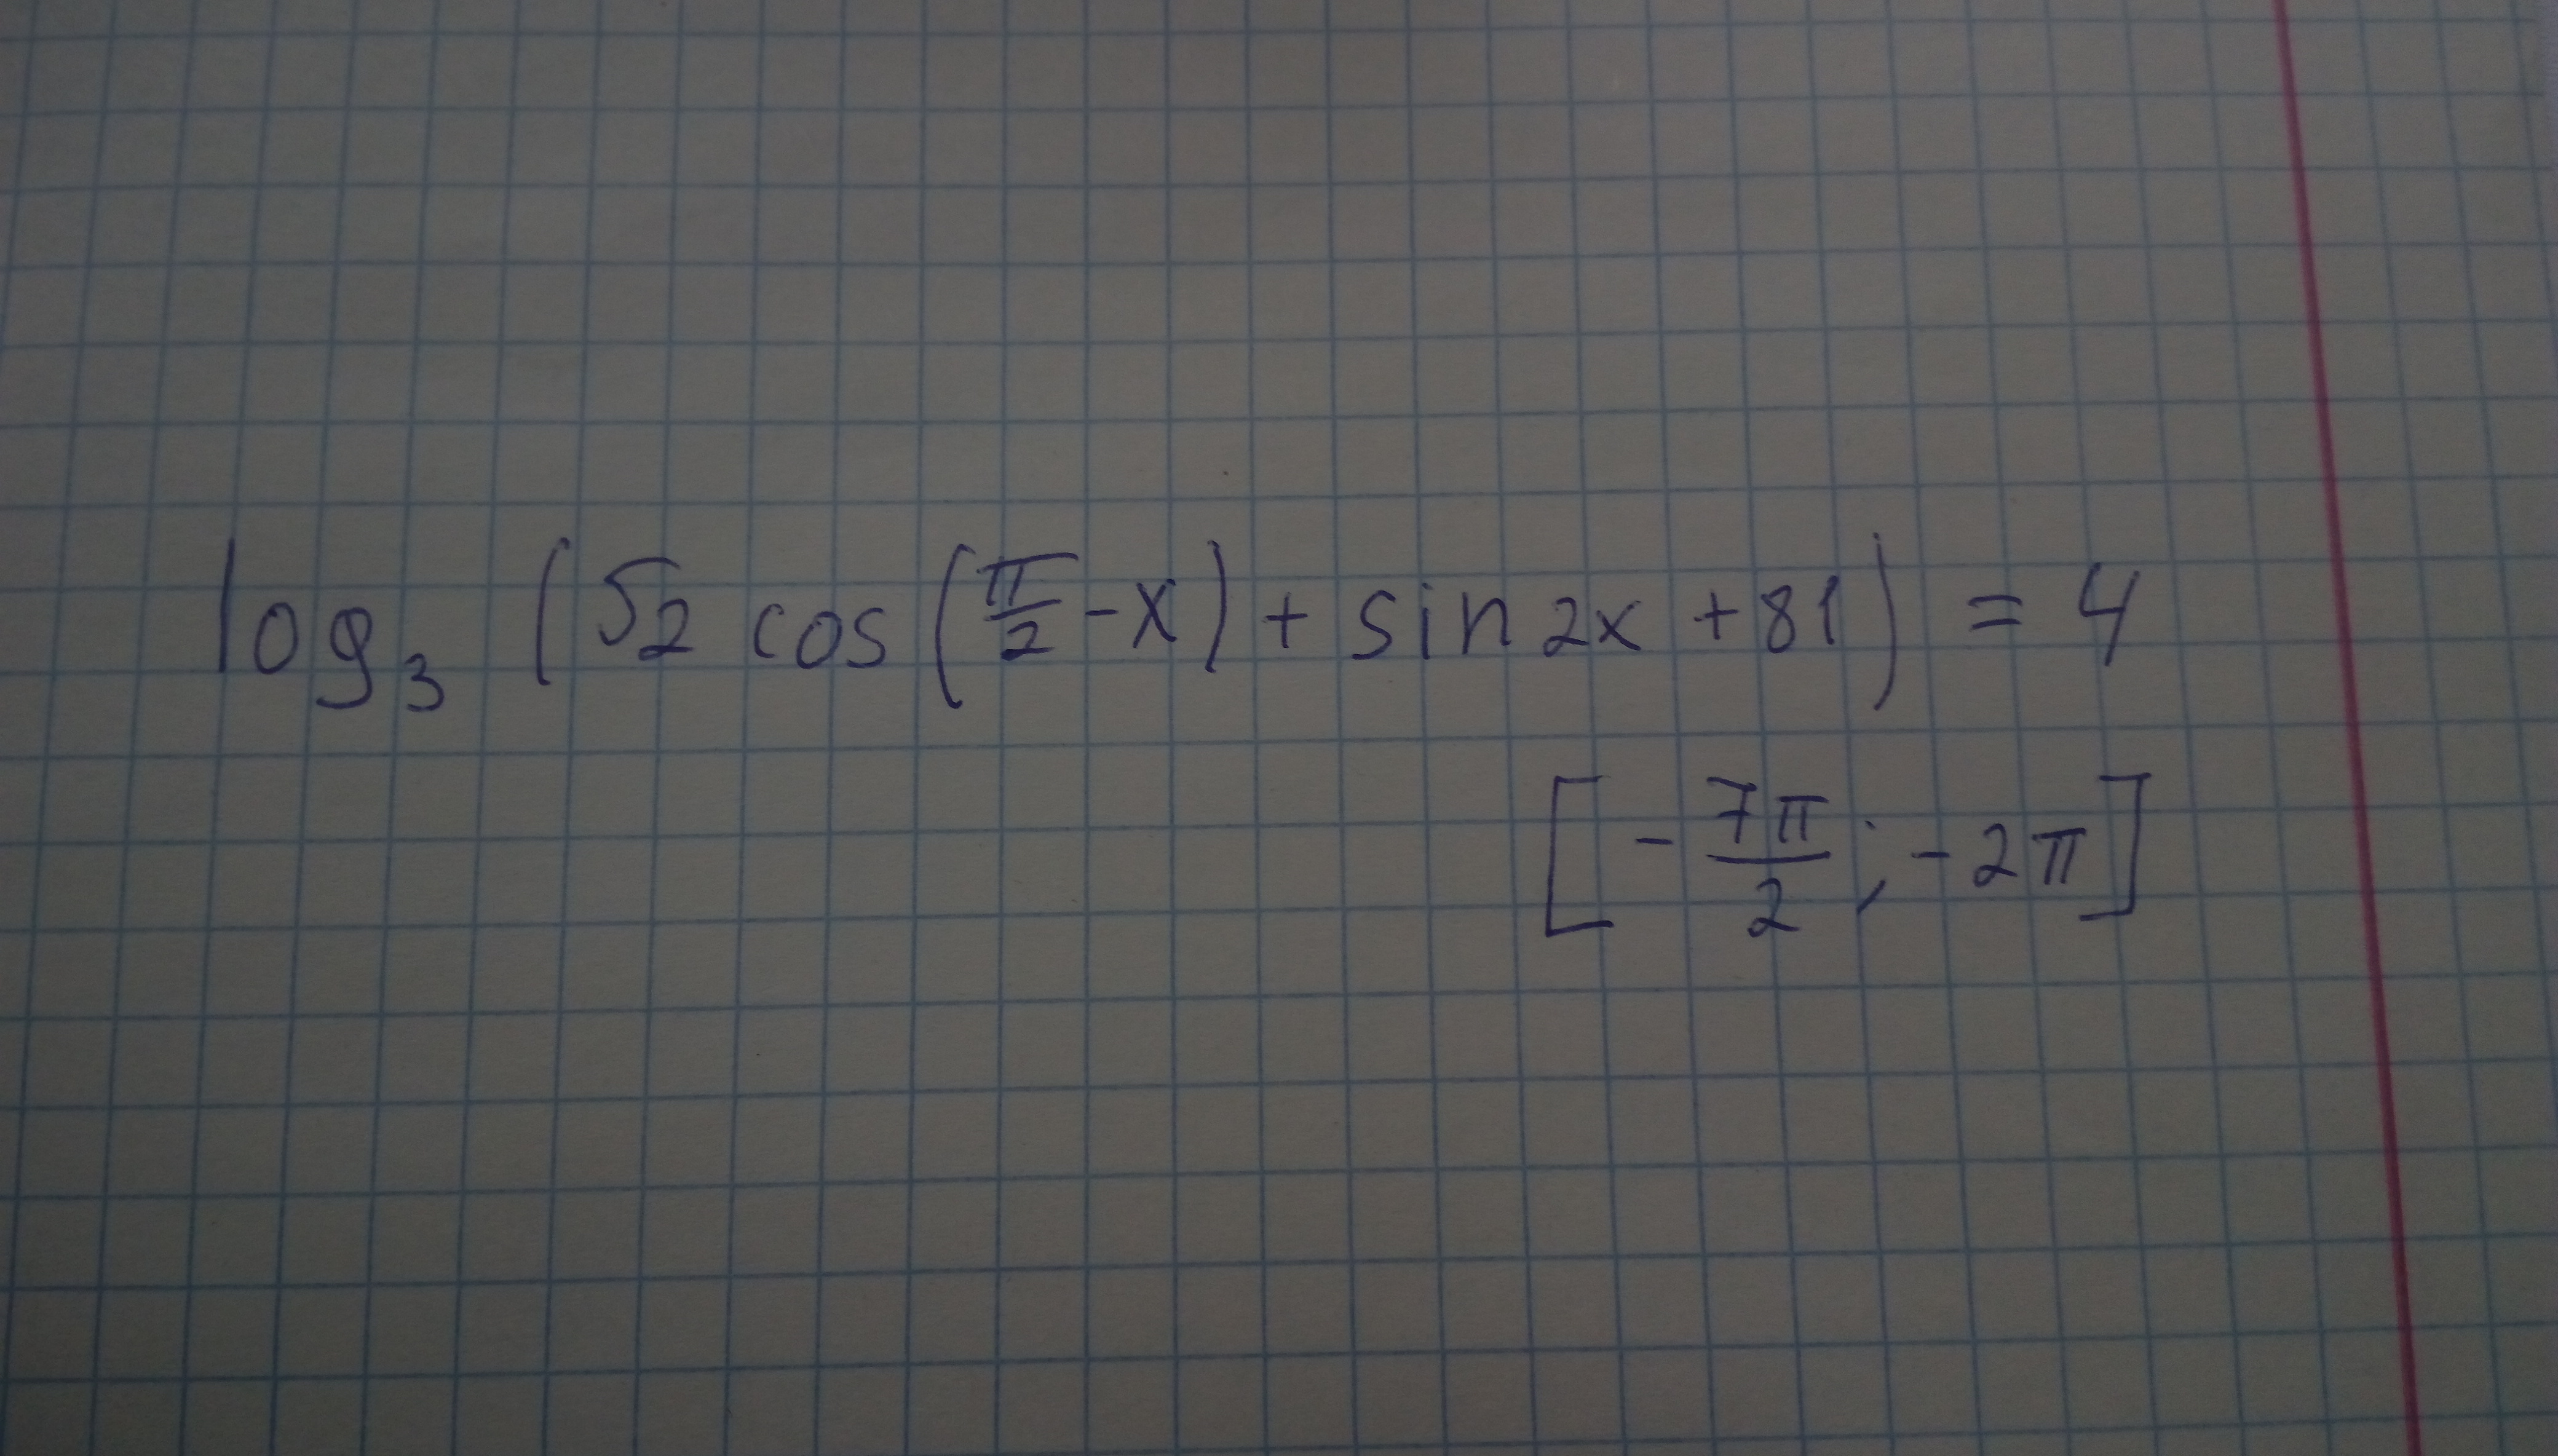 log₃ (√2 cos(π/2 - x) + sin2x + 81) = 4
[-7π/2; -2π]